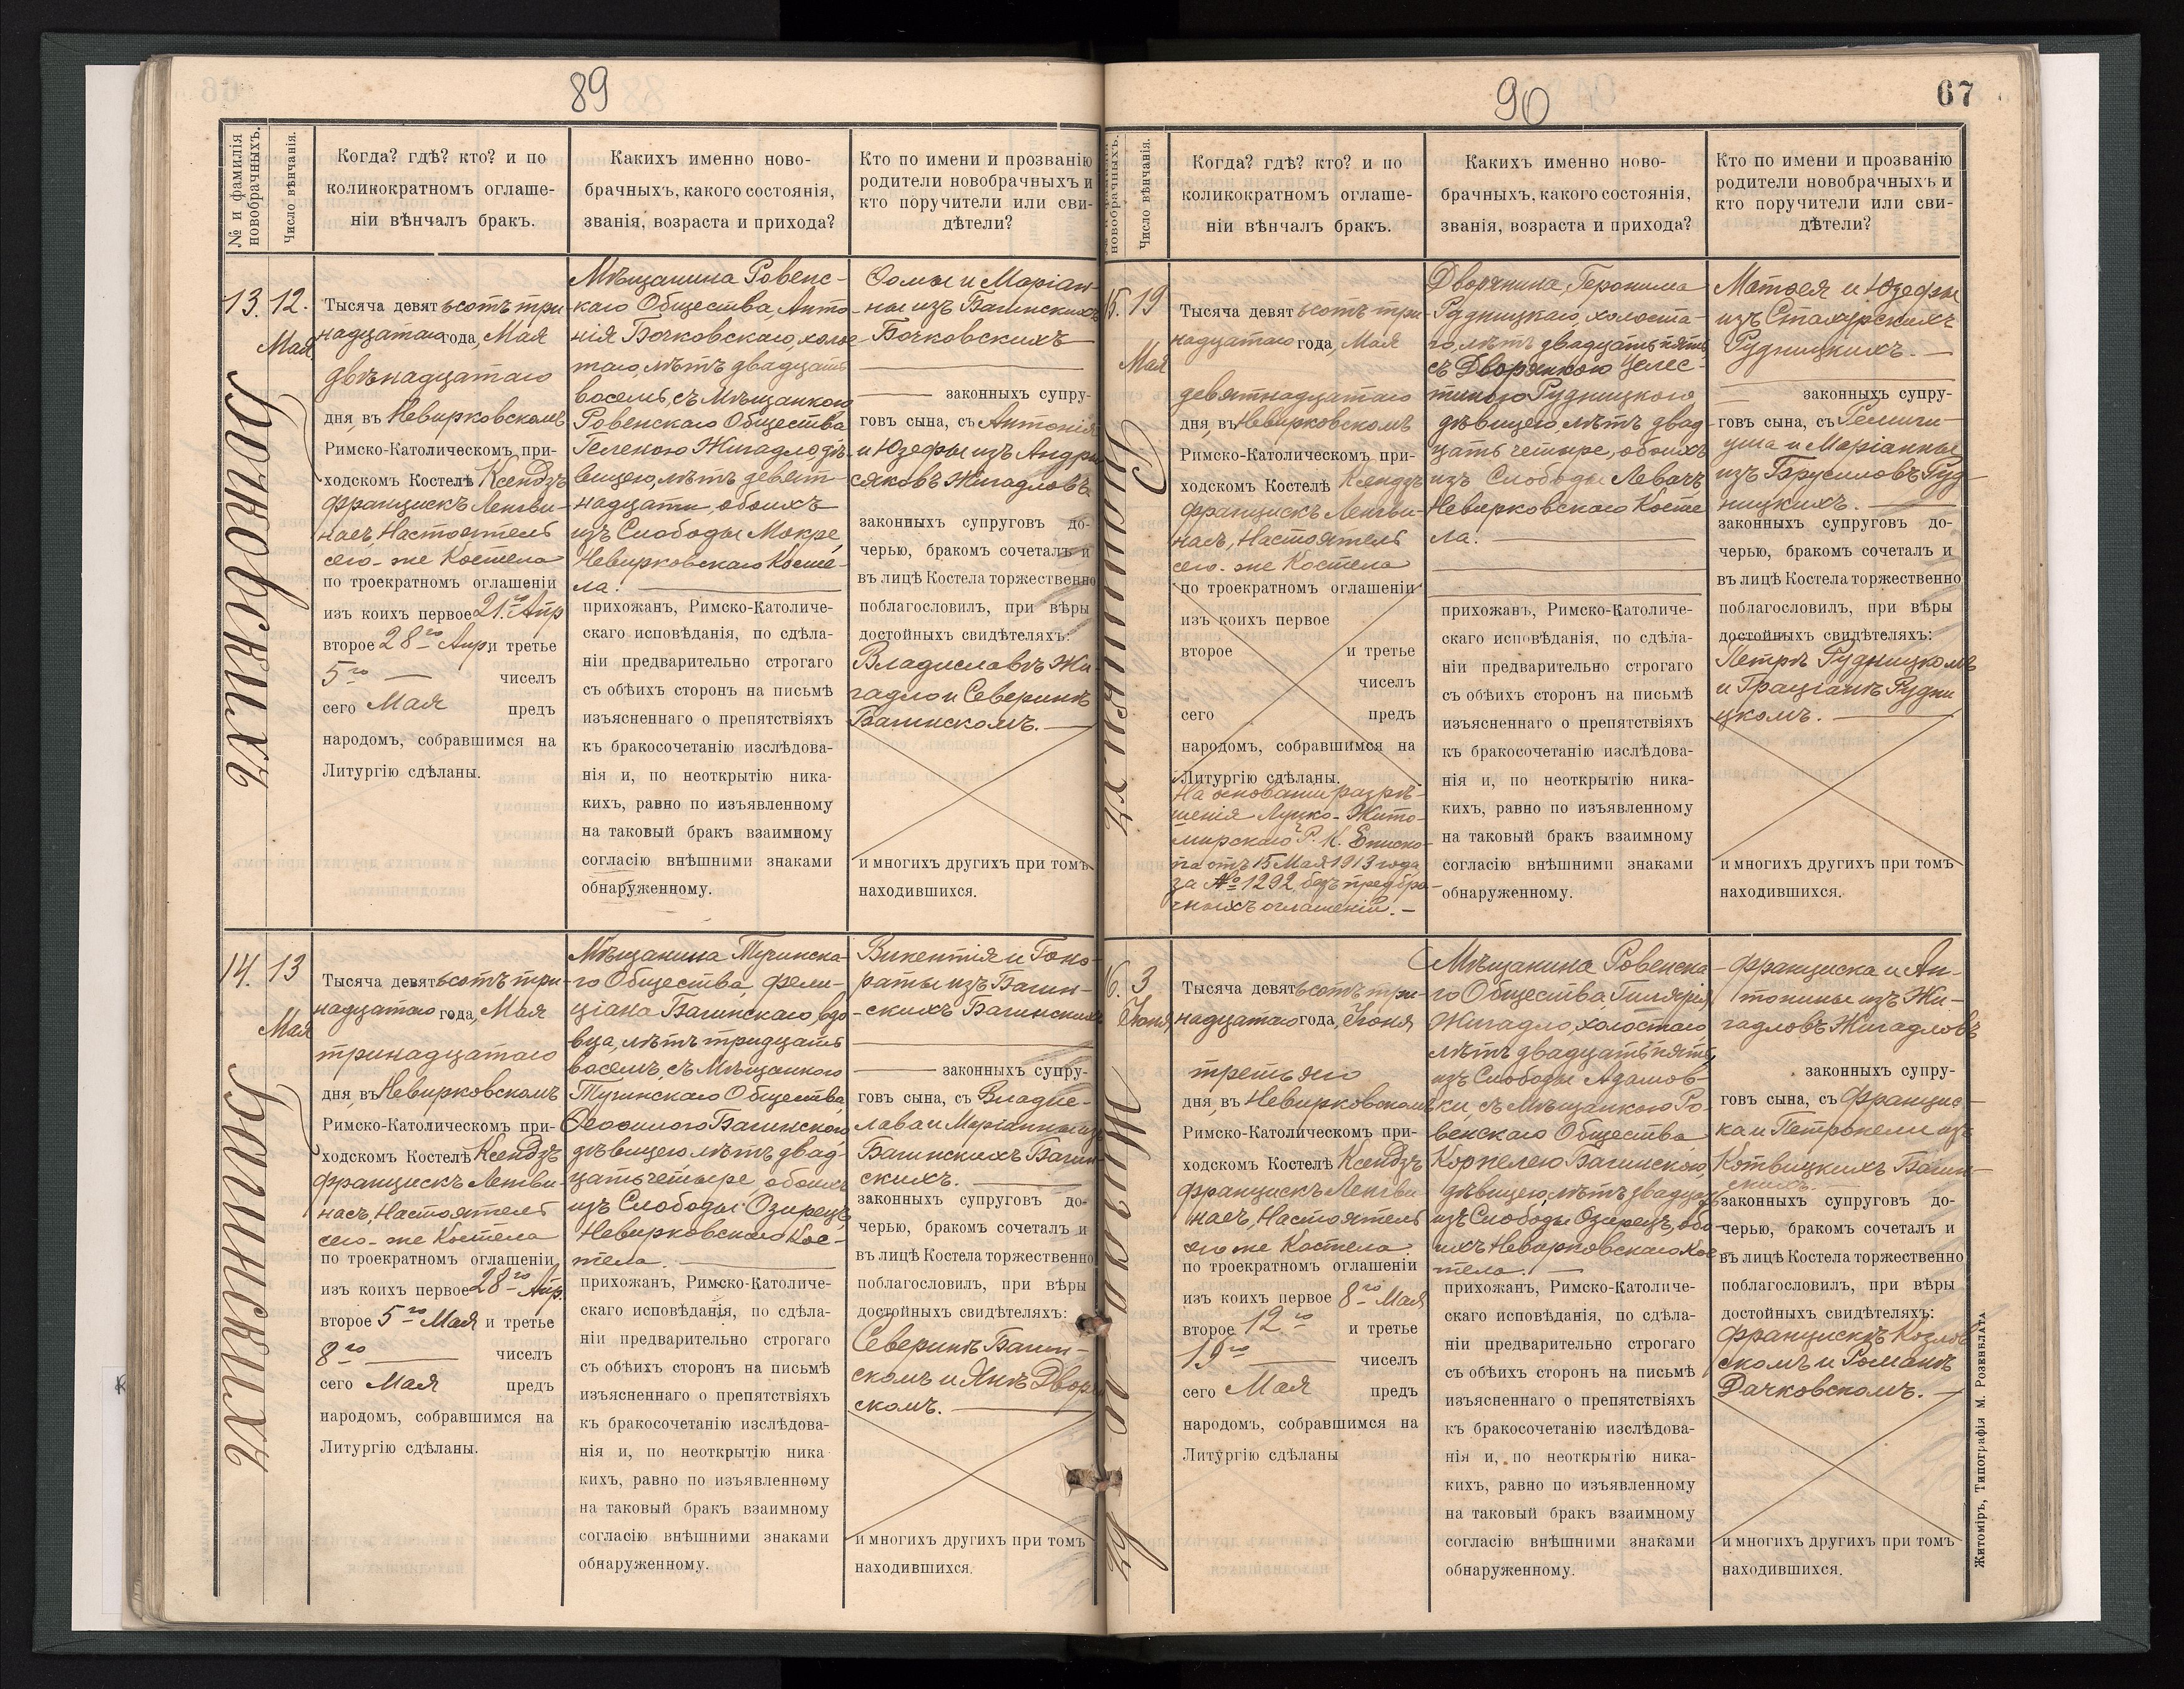 89
№ и фамилія новобрачныхъ.
Число вѣнчанія.
Когда? гдѣ? кто? и по
коликократномъ оглаше-
ніи вѣнчалъ бракъ.
Какихъ именно ново-
брачныхъ, какого состоянія,
званія, возраста и прихода?
Кто по имени и прозванію
родители новобрачныхъ и
кто поручители или сви-
дѣтели?
13.
12.
Мая
Бочковскихъ
Тысяча девятьсотъ три-
надцатаго года, Мая
двѣнадцатаго
дня, въ Невирковскомъ
Римско-Католическомъ при-
ходскомъ Костелѣ Ксендзъ
Францискъ Ленгви-
насъ, Настоятель
сего-же Костела
по троекратномъ оглашеніи
изъ коихъ первое 21го Апр
второе 28го Апр и третье
5го — чиселъ
сего Мая предъ
народомъ, собравшимся на
Литургію сдѣланы.
Мѣщанина Ровенс-
каго Общества, Анто-
нія Бочковскаго, холос-
таго, лѣтъ двадцать
восемь, съ Мѣщанкою
Ровенскаго Общества
Геленою Жигадло дѣ-
вицею, лѣтъ девят-
надцати, обоихъ
изъ Слободы Мокре,
Невирковскаго Косте-
ла.
прихожанъ, Римско-Католиче-
скаго исповѣданія, по сдѣла-
ніи предварительно строгаго
съ обѣихъ сторонъ на письмѣ
изъясненнаго о препятствіяхъ
къ бракосочетанію изслѣдова-
нія и, по неоткрытію ника-
кихъ, равно по изъявленному
на таковый бракъ взаимному
согласію внѣшними знаками
обнаруженному.
Ѳомы и Маріан-
ны изъ Багинскихъ
Бочковскихъ
законныхъ супру-
говъ сына, съ Антонія
и Юзефы изъ Андри-
сяковъ Жигадловъ
законныхъ супруговъ до-
черью, бракомъ сочеталъ и
въ лицѣ Костела торжественно
поблагословилъ, при вѣры
достойныхъ свидѣтеляхъ:
Владиславѣ Жи-
гадло и Северинѣ
Багинскомъ.
и многихъ другихъ при томъ
находившихся.
14.
13
Мая
Багинскихъ
Тысяча девятьсотъ три-
надцатаго года, Мая
тринадцатаго
дня, въ Невирковскомъ
Римско-Католическомъ при-
ходскомъ Костелѣ Ксендзъ
Францискъ Ленгви-
насъ, Настоятель
сего-же Костела
по троекратномъ оглашеніи
изъ коихъ первое 28го Апр.
второе 5го Мая и третье
8го — чиселъ
сего Мая предъ
народомъ, собравшимся на
Литургію сдѣланы.
Мѣщанина Тучинска-
го Общества, Фели-
ціана Багинскаго, вдо-
вца, лѣтъ тридцать
восемь, съ Мѣщанкою
Тучинскаго Общества,
Ѳеофилою Багинскою,
дѣвицею лѣтъ двад-
цать четыре, обоихъ
изъ Слободы Озирецъ,
Невирковскаго Кос-
тела.
прихожанъ, Римско-Католиче-
скаго исповѣданія, по сдѣла-
ніи предварительно строгаго
съ обѣихъ сторонъ на письмѣ
изъясненнаго о препятствіяхъ
къ бракосочетанію изслѣдова-
нія и, по неоткрытію ника
кихъ, равно по изъявленному
на таковый бракъ взаимному
согласію внѣшними знаками
обнаруженному.
Викентія и Гоно-
раты изъ Багин-
скихъ Багинскихъ
законныхъ супру-
говъ сына, съ Владис-
лава и Маріанны изъ
Багинскихъ Багин-
скихъ.
законныхъ супруговъ до-
черью, бракомъ сочеталъ и
въ лицѣ Костела торжественно
поблагословилъ, при вѣры
достойныхъ свидѣтеляхъ:
Северинѣ Багин-
скомъ и Янѣ Двор
скомъ.
и многихъ другихъ при томъ
находившихся.
90
67
новобрачныхъ.
Число вѣнчанія.
Когда? гдѣ? кто? и по
коликократномъ оглаше-
ніи вѣнчалъ бракъ.
Какихъ именно ново-
брачныхъ, какого состоянія,
званія, возраста и прихода?
Кто по имени и прозванію
родители новобрачныхъ и
кто поручители или сви-
дѣтели?
15.
19
Мая
Тысяча девятьсотъ три-
надцатаго года, Мая
девятнадцатаго
дня, въ Невирковскомъ
Римско-Католическомъ при-
ходскомъ Костелѣ Ксендзъ
Францискъ Ленгви-
насъ, Настоятель
сего-же Костела
по троекратномъ оглашеніи
изъ коихъ первое
второе и третье
чиселъ
сего предъ
народомъ, собравшимся на
Литургію сдѣланы.
На основаніи разрѣ-
шенія Луцко-Жито-
мирскаго Р. К. Еписко-
па отъ 15 Мая 1913 года
за № 1292 безъ предбра-
чныхъ оглашеній.
Дворянина, Геронима
Рудницкаго, холоста-
го, лѣтъ двадцать пять,
съ Дворянкою Целес-
тиною Рудницкою
дѣвицею, лѣтъ двад
цать четыре, обоихъ
изъ Слободы Левачъ,
Невирковскаго Косте
ла.
прихожанъ, Римско-Католиче-
скаго исповѣданія, по сдѣла-
ніи предварительно строгаго
съ обѣихъ сторонъ на письмѣ
изъясненнаго о препятствіяхъ
къ бракосочетанію изслѣдова-
нія и, по неоткрытію ника-
кихъ, равно по изъявленному
на таковый бракъ взаимному
согласію внѣшними знаками
обнаруженному.
Матѳея и Юзефы
изъ Стахурскихъ
Рудницкихъ.
законныхъ супру-
говъ сына, съ
и Маріанны
изъ Брусиловъ Руд-
ницкихъ.
законныхъ супруговъ до-
черью, бракомъ сочеталъ и
въ лицѣ Костела торжественно
поблагословилъ, при вѣры
достойныхъ свидѣтеляхъ:
Петрѣ Рудницкомъ
и Граціанѣ Рудни
цкомъ.
и многихъ другихъ при томъ
находившихся.
16.
3
Іюня
Тысяча девятьсотъ три-
надцатаго года, Іюня
третьяго
дня, въ Невирковскомъ
Римско-Католическомъ при-
ходскомъ Костелѣ Ксендзъ
Францискъ Ленгви
насъ, Настоятель
сего же Костела
по троекратномъ оглашеніи
изъ коихъ первое 8го Мая
второе 12го и третье
19го — чиселъ
сего Мая предъ
народомъ, собравшимся на
Литургію сдѣланы
Мѣщанина Ровенска-
го Общества, Гилярія
Жигадло, холостаго
лѣтъ двадцать пять,
изъ Слободы Адамов-
ки, съ Мѣщанкою Ро-
венскаго Общества
Корнелею Багинскою,
дѣвицею, лѣтъ двадцать
изъ Слободы Озирецъ, обо-
ихъ Невирковскаго Кос
тела.
прихожанъ, Римско-Католиче-
скаго исповѣданія, по сдѣла-
ніи предварительно строгаго
съ обѣихъ сторонъ на письмѣ
изъясненнаго о препятствіяхъ
къ бракосочетанію изслѣдова-
нія и, по неоткрытію ника-
кихъ, равно по изъявленному
на таковый бракъ взаимному
согласію внѣшними знаками
обнаруженному.
Франциска и Ан-
тонины изъ Жи-
гадловъ Жигадловъ
законныхъ супру-
говъ сына, съ Францис-
ка и Петронели изъ
Котвицкихъ Багин-
скихъ.
законныхъ супруговъ до-
черью, бракомъ сочеталъ и
въ лицѣ Костела торжественно
поблагословилъ, при вѣры
достойныхъ свидѣтеляхъ:
Францискѣ Козлов
скомъ и Романѣ
Дачковскомъ.
и многихъ другихъ при томъ
находившихся.
Житоміръ, Типографія М. Розенблата